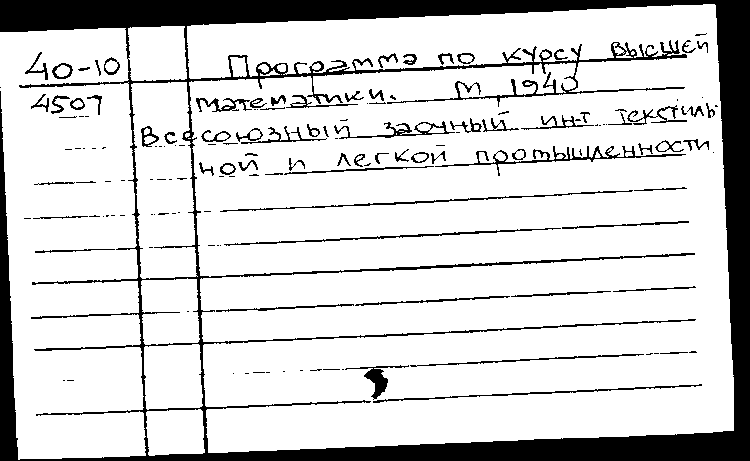 40-10 Программа по курсу высшей
4507 математики. М, 1940
Всесоюзный заочный ин-т текстиль
ной и легкой промышленности